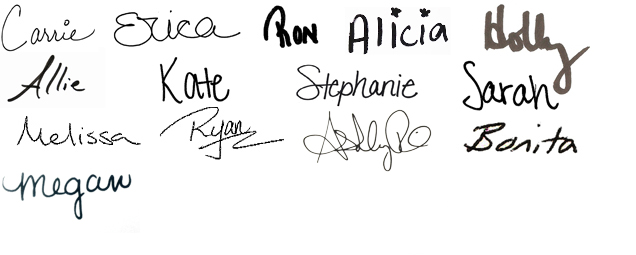 Carrie Erica Ron Alicia Holly
Allie Kate Stephanie Sarah
Melissa Ryan Ashley Bonita
Megan